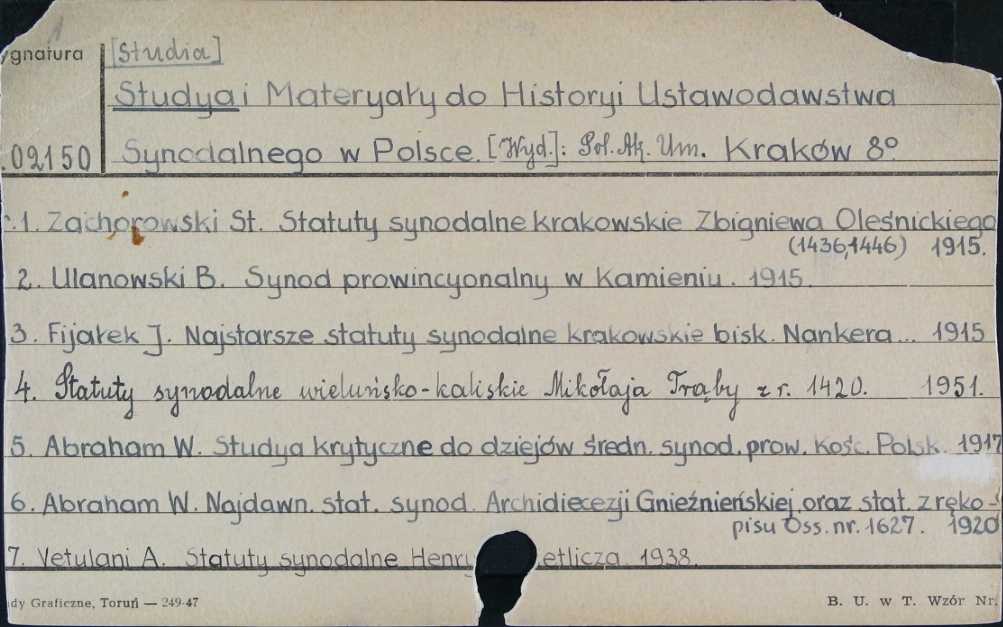 ygnatura [Studia]
Studya i Materyały do Historyi Ustawodawstwa
.02150 Synodalnego w Polsce. [Wyd.]: Pol. Ak. Um. Kraków 8º
1. Zachorowski St. Statuty synodalne krakowskie Zbigniewa Oleśnickiego
(1436, 1446) 1915.
2. Ulanowski B. Synod prowincyonalny w Kamieniu. 1915.
3. Fijałek J. Najstarsze statuty synodalne krakowskie bisk. Nankera... 1915
4. Statuty synodalne wieluńsko-kaliskie Mikołaja Trąby z r. 1420. 1951.
5. Abraham W. Studya krytyczne do dziejów średn. synod. prow. Kośc. Polsk. 1917
6. Abraham W. Najdawn. stat. synod. Archidiecezji Gnieźnieńskiej oraz stat. z ręko-
pisu Oss. nr. 1627. 1920
7. Vetulani A. Statuty synodalne Henry etlicza. 1938.
dy Graficzne, Toruń — 249-47 B. U. w T. Wzór Nr.